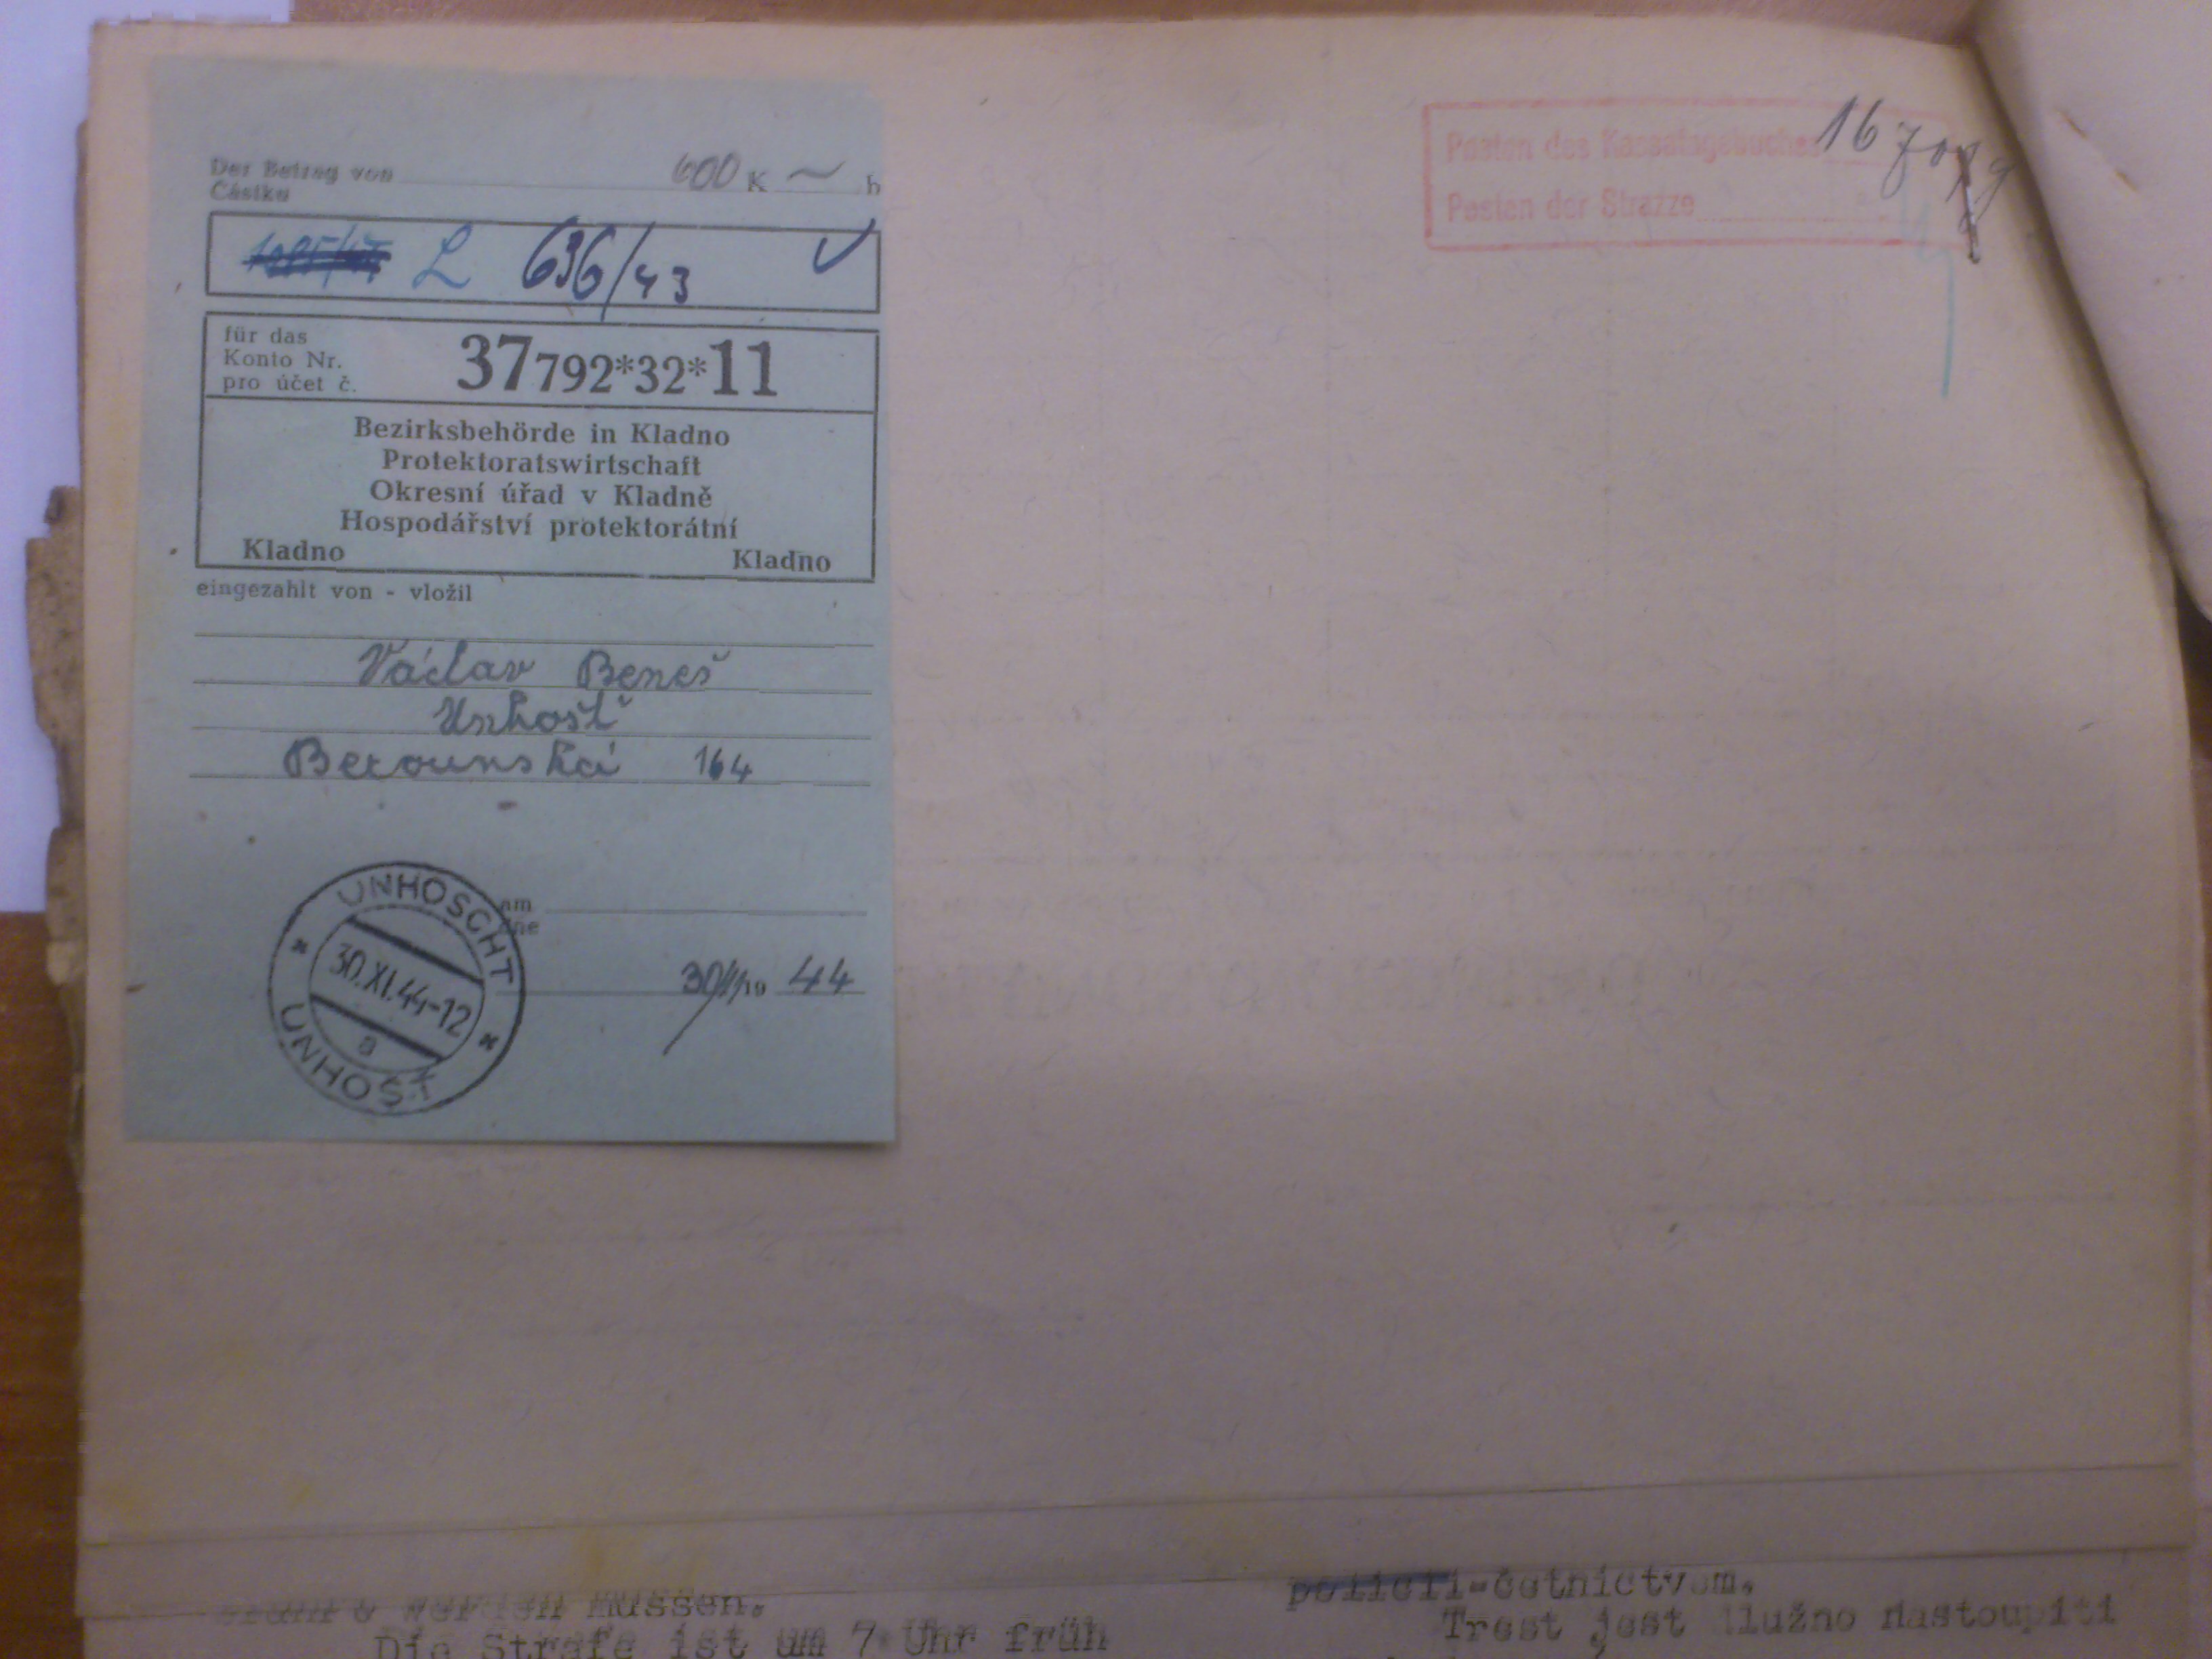 Der Betrag von 600 K ~ h
Částka
L 636/43
für das
Konto Nr.
pro účet č.
37792*32*11
Bezirksbehörde in Kladno
Protektoratswirtschaft
Okresní úřad v Kladně
Hospodářství protektorátní
Kladno Kladno
eingezahlt von - vložil
Václav Beneš
Unhošť
Berounská 164
am
dne
30/XI 19 44
UNHOSCHT
30.XI.44-12
a
UNHOŠŤ
Posten des Kassatagebuches 16
Posten der Strazze
werden müssen.
Die Strafe ist um 7 Uhr früh
policii-četnictvem.
Trest jest nastoupiti